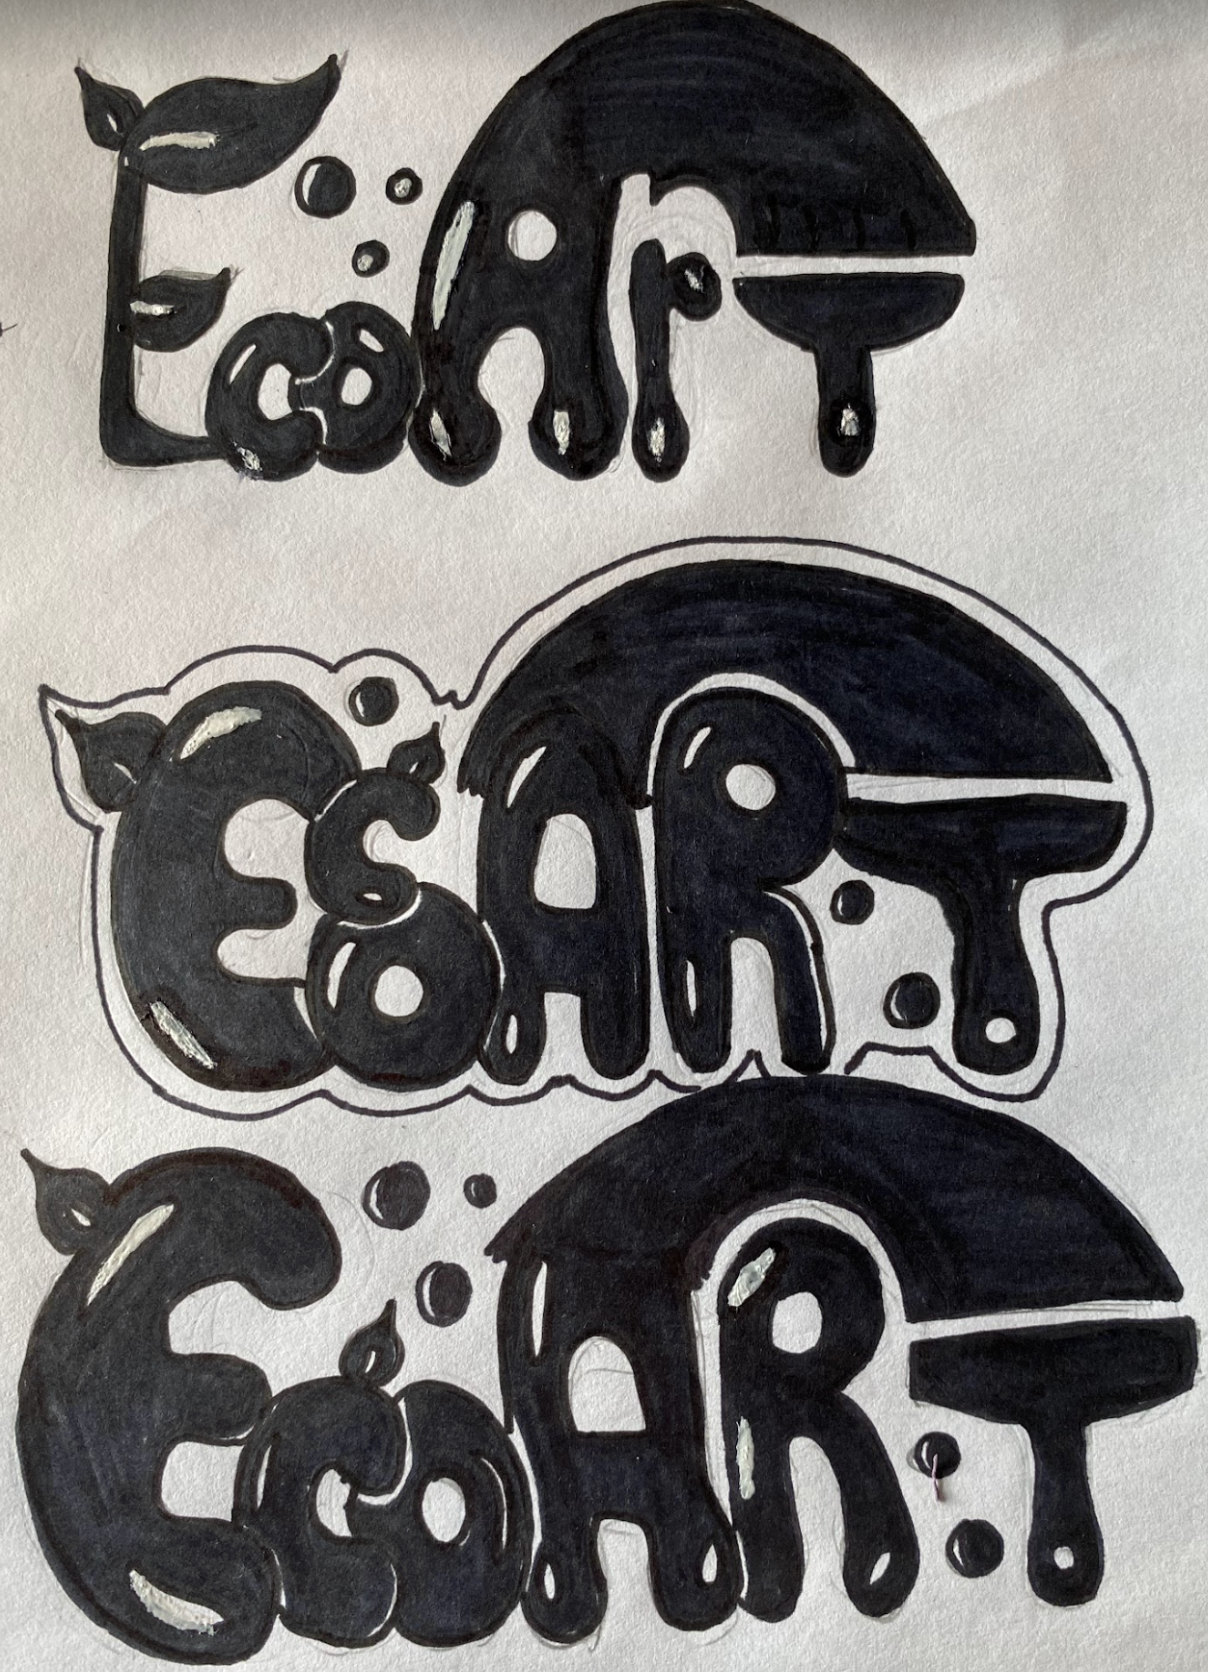 EcoArT
EcoART
EcoART